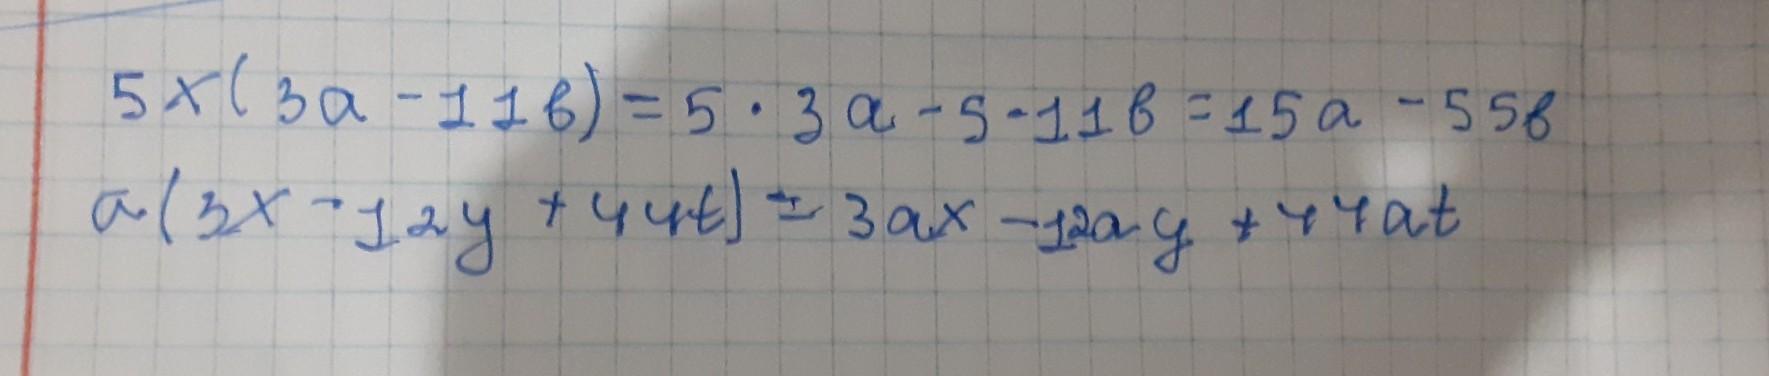 5x(3a-11b)=5·3a-5·11b=15a-55b
a(3x-12y+44t)=3ax-12ay+44at